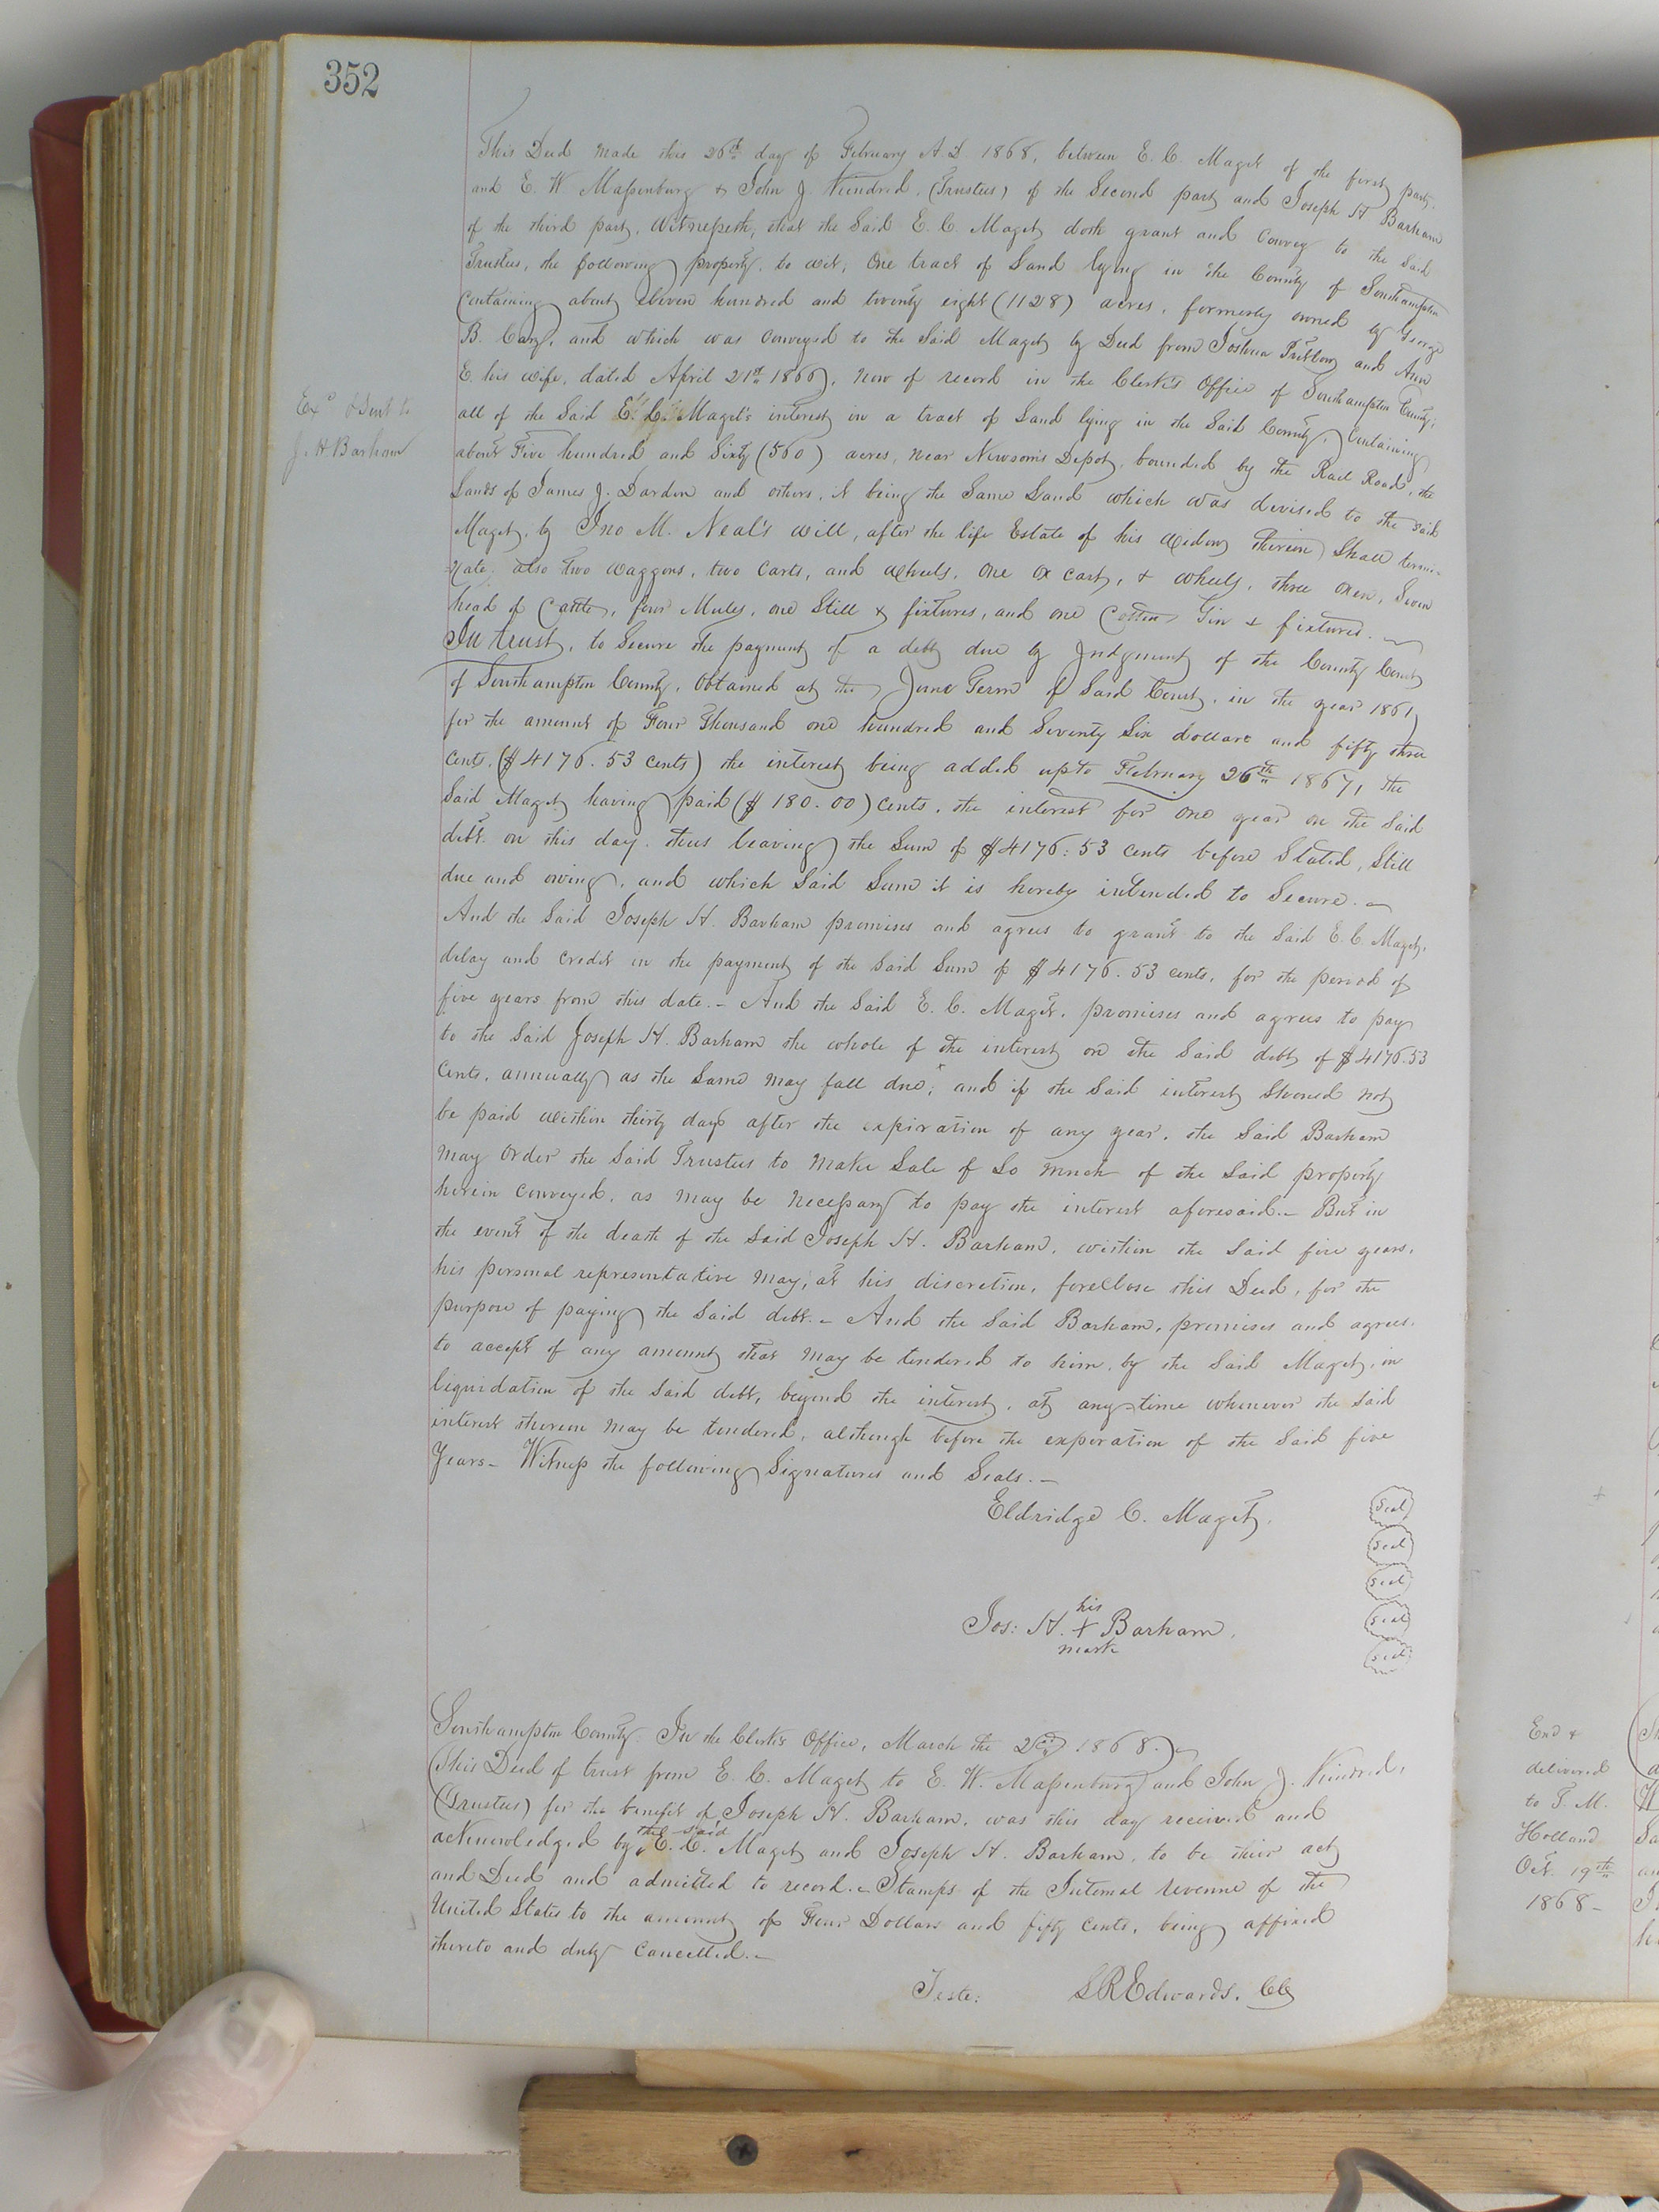 352
This Deed made this 26th day of February A.D. 1868, between E. C. Maget of the first part,
and E. W. Massenburg & John J. Kindred, (Trustees) of the Second part and Joseph H Barham
of the third part, Witnesseth, that the Said E. C. Maget doth grant and Convey to the Said
Trustees, the following property, to wit, One tract of Land lying in the County of Southampton
Containing about Eleven hundred and twenty eight (1128) acres, formerly owned by George
B. Cary, and which was conveyed to the Said Maget by Deed from Joshua Pretlow and Ann
E. his wife, dated April 21st 1866, now of record in the Clerk's Office of Southampton County;
all of the Said E. C. Maget's interest in a tract of Land lying in the Said County, Containing
about Five hundred and Sixty (560) acres, near Newsom's Depot, bounded by the Rail Road, the
Lands of James J. Darden and others, it being the Same Land which was devised to the said
Maget, by Jno M. Neal's will, after the life Estate of his Widow therein Shall termi-
=nate: also two Waggons, two Carts, and Wheels, One Ox cart, & wheels, three oxen, Seven
head of Cattle, four Mules, one Still & fixtures, and one Cotton Gin & fixtures.
In trust, to Secure the payment of a debt due by Judgment of the County Court
of Southampton County, Obtained at the June Term of Said Court, in the year 1861,
for the amount of Four Thousand one hundred and Seventy Six dollars and fifty three
Cents, ($4176.53 cents) the interest being added upto February 26th 1867, the
Said Maget having paid ($180.00) cents, the interest for one year on the Said
debt on this day, thus leaving the Sum of $4176:53 cents before Stated, Still
due and owing, and which Said Sum it is hereby intended to Secure.—
And the Said Joseph H. Barham promises and agrees to grant to the Said E. C Maget,
delay and credit in the payment of the Said Sum of $4176.53 cents, for the period of
five years from this date.— And the Said E. C. Maget, promises and agrees to pay
to the Said Joseph H. Barham the whole of the interest on the Said debt of $4176.53
Cents, annually as the Same may fall due; and if the Said interest Should not
be paid within thirty days after the expiration of any year, the Said Barham
may Order the Said Trustees to make Sale of So much of the Said property
herein Conveyed, as may be necessary to pay the interest aforesaid.— But in
the event of the death of the Said Joseph H. Barham, within the Said five years,
his personal representative may, at his discretion, foreclose this Deed, for the
purpose of paying the Said debt.— And the Said Barham, promises and agrees,
to accept of any amount that may be tendered to him, by the Said Maget, in
liquidation of the Said debt, beyond the interest, at any time whenever the Said
interest thereon may be tendered, although before the experation of the Said five
Years— Witness the following Signatures and Seals.—
Eldridge C. Maget, Seal
Seal
Seal
his
Jos: H. + Barham, Seal
mark
Seal
Southampton County: In the Clerk's Office, March the 2nd 1868.
This Deed of trust from E. C. Maget to E. W. Massenburg and John J. Kindred,
(Trustees) for the benefit of Joseph H. Barham, was this day received and
the said
acknowledged by E. C. Maget and Joseph H. Barham, to be their act
and Deed and admitted to record.— Stamps of the Internal revenue of the
United States to the amount of Four Dollars and fifty Cents, being affixed
thereto and duly Cancelled.—
Teste: S R Edwards, Clk
Exd & Sent to
J. H Barham
End &
delivered
to T. M.
Holland
Oct. 19th
1868—